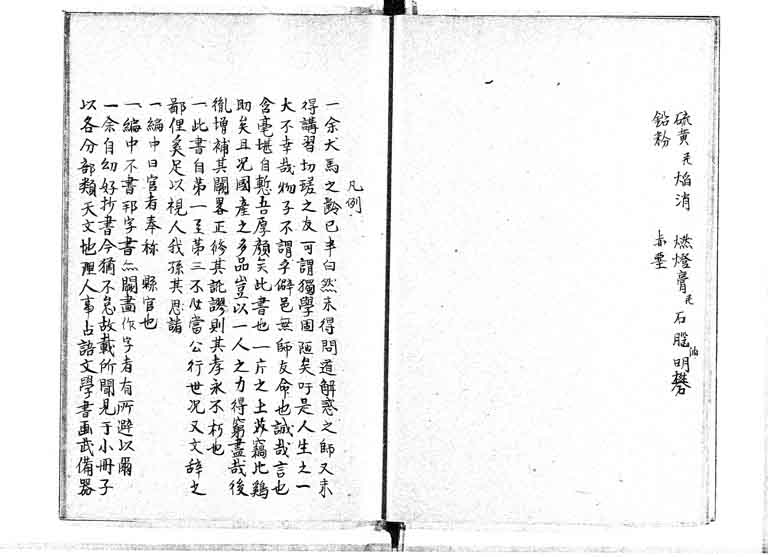 硫黄 焔消 燃燈膏 石脳油 明礬
鉛粉 赤堊
凡例
一余犬馬之齢已半白然未得問道解惑之師又未
得講習切瑳之友可謂獨學固陋矣吁是人生之一
大不幸哉物子不謂乎僻邑無師友命也誠哉言也
含毫堪自慙吾厚顔矣此書也一片之土苴竊比鶏
肋矣且況國産之多品豈以一人之力得窮盡哉後
胤増補其闕畧正修其訛謬則其孝永不朽也
一此書自第一至第三不必當公行世况又文辞之
鄙俚奚足以視人我孫其思諸
一編中曰官者奉称 縣官也
一編中不書邦字書 闕畫作字者有所避以爾
一余自幼好抄書今猶不怠故載所聞見于小冊子
以各分部類天文地理人事占語文學書画武備器